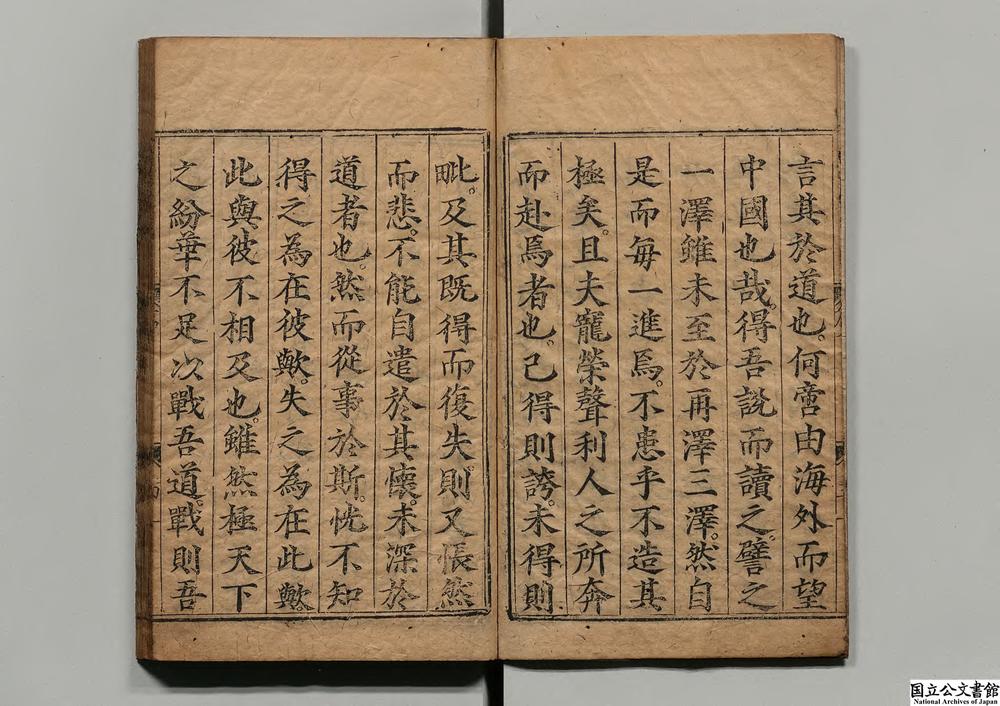 言其於道也。何啻由海外而望
中國也哉。得吾說而讀之。譬之
一澤雖未至於再澤三澤。然自
是而每一進焉。不患乎不造其
極矣。且夫寵榮聲利人之所奔
而赴焉者也。已得則誇。未得則
毗。及其既得而復失。則又悵然
而悲。不能自遣於其懷。未深於
道者也。然而從事於斯。恍不知
得之為在彼歟。失之為在此歟。
此與彼不相及也。雖然極天下
之紛華不足以戰吾道。戰則吾
国立公文書館
National Archives of Japan